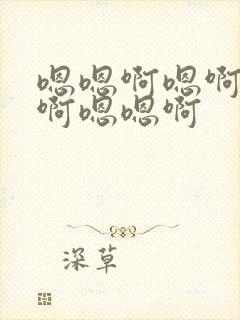 嗯嗯啊嗯啊
啊嗯嗯啊
深草